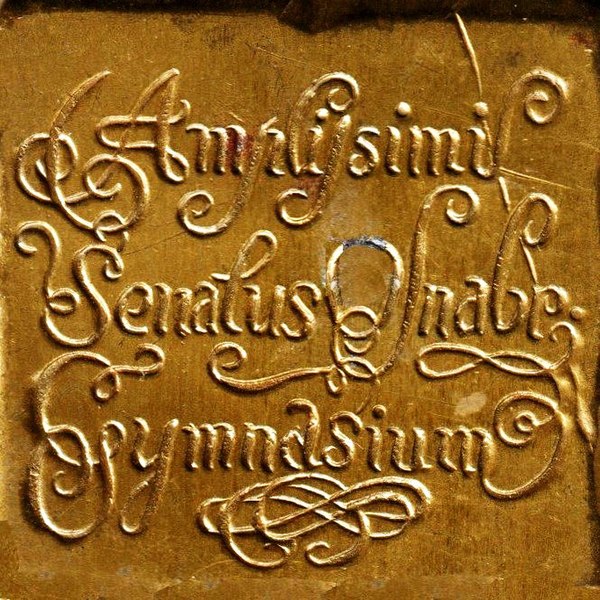 Ampliſsimi
Senatus Oſnabr:
Gymnasium